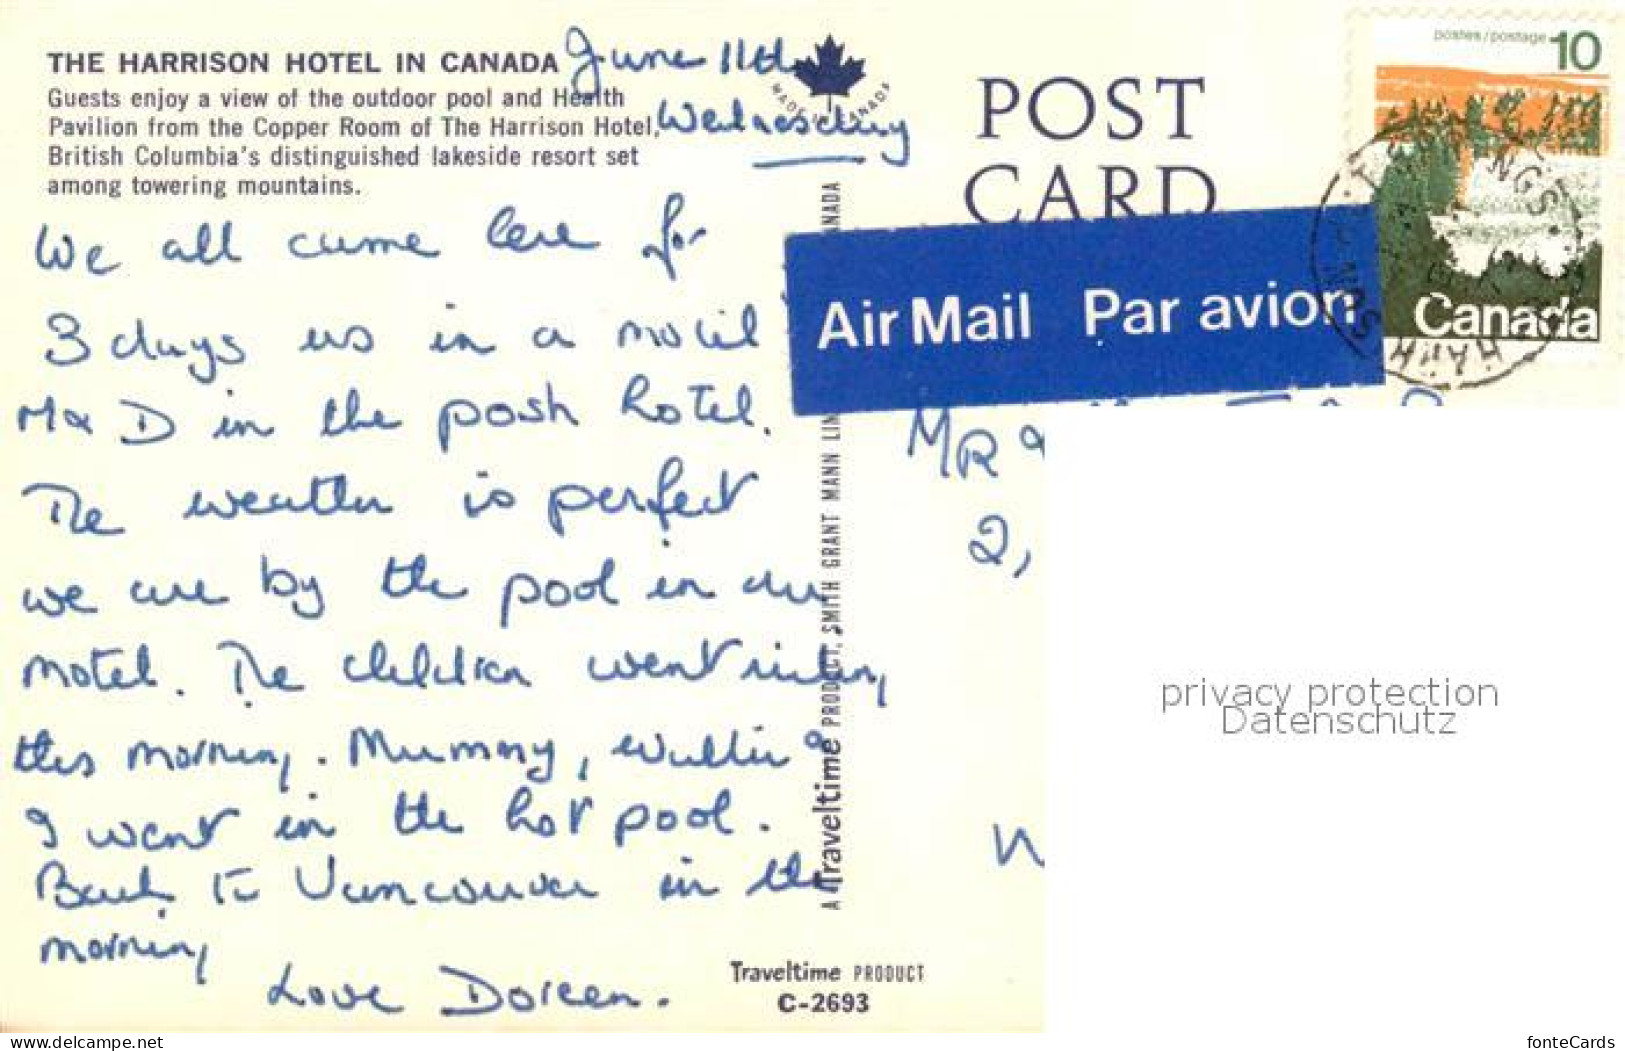 THE HARRISON HOTEL IN CANADA
Guests enjoy a view of the outdoor pool and Health
Pavilion from the Copper Room of The Harrison Hotel,
British Columbia's distinguished lakeside resort set
among towering mountains.
June 11th
Wednesday
We all came here for
3 days us in a motel
M & D in the posh hotel.
The weather is perfect
we are by the pool in our
motel. The children went riding
this morning. Mummy, &
I went in the hot pool.
Back to Vancouver in the
morning
Love Doreen.
MADE IN CANADA
A Traveltime PRODUCT, SMITH GRANT MANN LIN
ANADA
Traveltime PRODUCT
C-2693
POST
CARD
Air Mail Par avion
postes/postage 10
Canada
MR &
2,
privacy protection
Datenschutz
www.delcampe.net
fonteCards